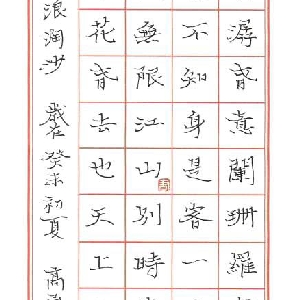 潺春意闌珊羅
不知身是客一
無限江山別時
花春去也天上
浪淘沙 歲在癸未初夏 高